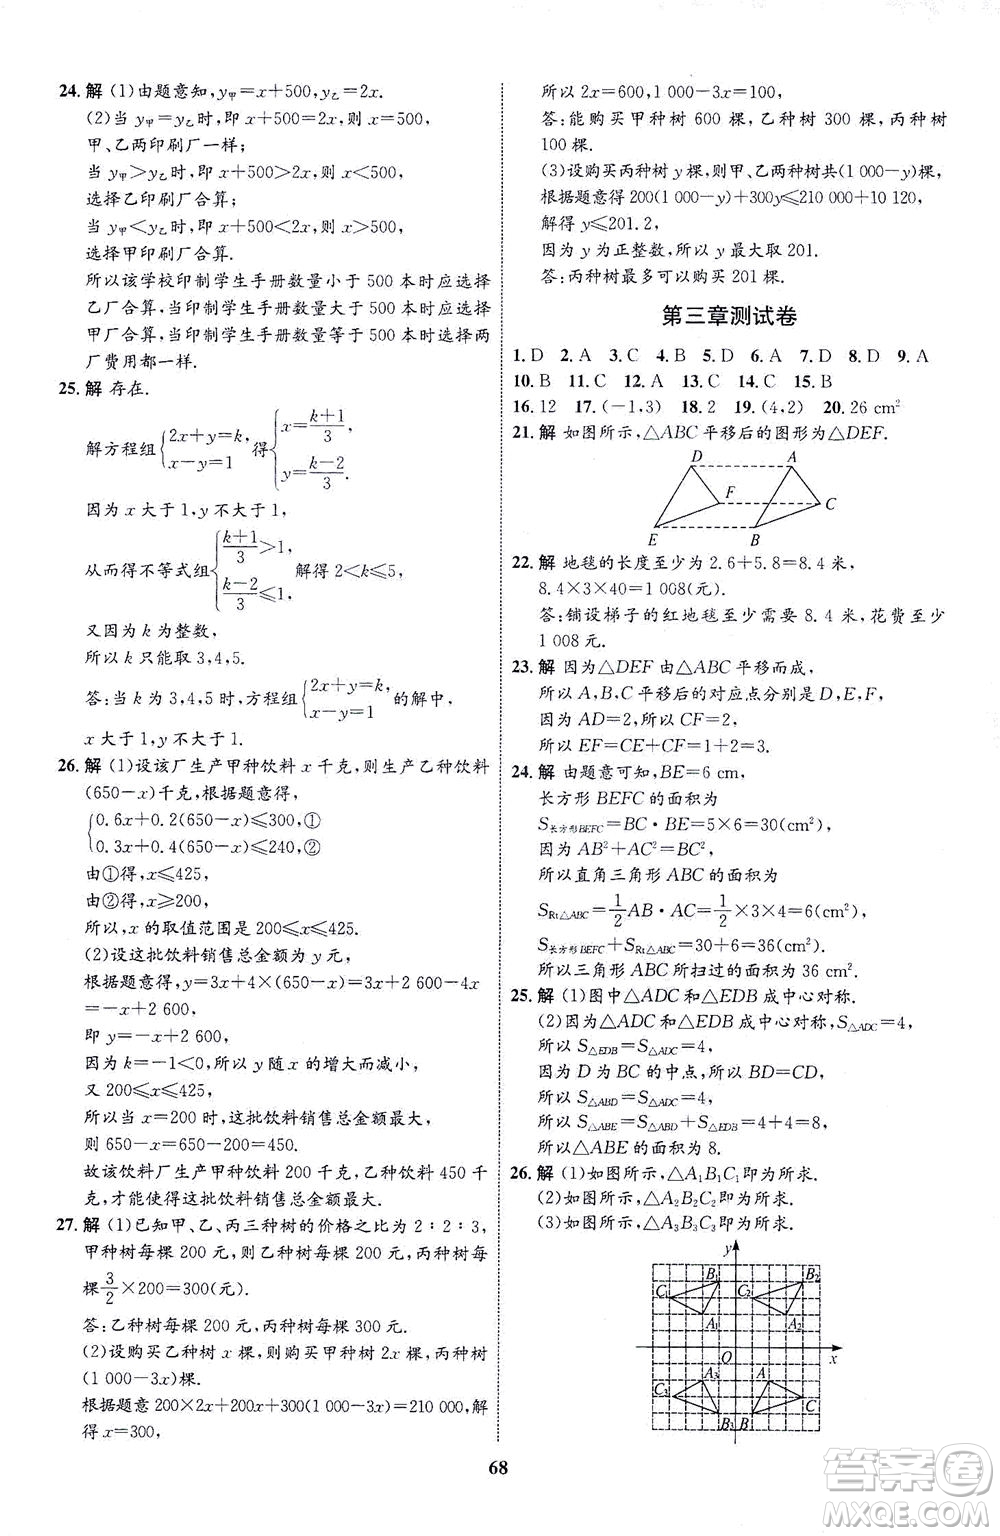 24. 解 (1)由题意知,y甲=x+500,y乙=2x.
(2)当 y甲=y乙时,即 x+500=2x,则 x=500,
甲、乙两印刷厂一样;
当 y甲>y乙时,即 x+500>2x,则 x<500,
选择乙印刷厂合算;
当 y甲<y乙时,即 x+500<2x,则 x>500,
选择甲印刷厂合算.
所以该学校印制学生手册数量小于 500 本时应选择
乙厂合算,当印制学生手册数量大于 500 本时应选择
甲厂合算,当印制学生手册数量等于 500 本时选择两
厂费用都一样.
25. 解 存在.
解方程组{2x+y=k, x-y=1 得{x=(k+1)/3, y=(k-2)/3.
因为 x 大于 1,y 不大于 1,
从而得不等式组{(k+1)/3>1, (k-2)/3≤1, 解得 2<k≤5,
又因为 k 为整数,
所以 k 只能取 3,4,5.
答:当 k 为 3,4,5 时,方程组{2x+y=k, x-y=1 的解中,
x 大于 1,y 不大于 1.
26. 解 (1)设该厂生产甲种饮料 x 千克,则生产乙种饮料
(650-x)千克,根据题意得,
{0.6x+0.2(650-x)≤300,①
0.3x+0.4(650-x)≤240,②
由①得,x≤425,
由②得,x≥200,
所以,x 的取值范围是 200≤x≤425.
(2)设这批饮料销售总金额为 y 元.
根据题意得,y=3x+4(650-x)=3x+2 600-4x
=-x+2 600,
即 y=-x+2 600,
因为 k=-1<0,所以 y 随 x 的增大而减小,
又 200≤x≤425,
所以当 x=200 时,这批饮料销售总金额最大,
则 650-x=650-200=450,
故该饮料厂生产甲种饮料 200 千克,乙种饮料 450 千
克,才能使得这批饮料销售总金额最大.
27. 解 (1)已知甲、乙、丙三种树的价格之比为 2∶2∶3,
甲种树每棵 200 元,则乙种树每棵 200 元,丙种树每
棵3/2×200=300(元).
答:乙种树每棵 200 元,丙种树每棵 300 元.
(2)设购买乙种树 x 棵,则购买甲种树 2x 棵,丙种树
(1 000-3x)棵.
根据题意 200×2x+200x+300(1 000-3x)=210 000,解
得 x=300,
所以 2x=600,1 000-3x=100,
答:能购买甲种树 600 棵,乙种树 300 棵,丙种树
100 棵.
(3)设购买丙种树 y 棵,则甲、乙两种树共(1 000-y)棵,
根据题意得 200(1 000-y)+300y≤210 000+10 120,
解得 y≤201.2,
因为 y 为正整数,所以 y 最大取 201.
答:丙种树最多可以购买 201 棵.
第三章测试卷
1. D 2. A 3. C 4. B 5. D 6. A 7. D 8. D 9. A
10. B 11. C 12. A 13. D 14. C 15. B
16. 12 17. (-1,3) 18. 2 19. (4,2) 20. 26 cm²
21. 解 如图所示,△ABC 平移后的图形为△DEF.
D A
F C
E B
22. 解 地毯的长度至少为 2.6+5.8=8.4 米,
8.4×3×40=1 008(元).
答:铺设梯子的红地毯至少需要 8.4 米,花费至少
1 008 元.
23. 解 因为△DEF 由△ABC 平移而成,
所以 A,B,C 平移后的对应点分别是 D,E,F,
因为 AD=2,所以 CF=2,
所以 EF=CE+CF=1+2=3.
24. 解 由题意可知,BE=6 cm,
长方形 BEFC 的面积为
S长方形BEFC=BC·BE=5×6=30(cm²)
因为 AB²+AC²=BC²,
所以直角三角形 ABC 的面积为
SRt△ABC=1/2AB·AC=1/2×3×4=6(cm²)
S长方形BEFC+SRt△ABC=30+6=36(cm²).
所以三角形 ABC 所扫过的面积为 36 cm².
25. 解 (1)图中△ADC 和△EDB 成中心对称.
(2)因为△ADC 和△EDB 成中心对称,S△ADC=4,
所以 S△EDB=S△ADC=4,
因为 D 为 BC 的中点,所以 BD=CD,
所以 S△ABD=S△ADC=4,
所以 S△ABE=S△ABD+S△EDB=4+4=8,
所以△ABE 的面积为 8.
26. 解 (1)如图所示,△A1B1C1即为所求.
(2)如图所示,△A2B2C2即为所求.
(3)如图所示,△A3B3C3即为所求.
y
B1 B2
C1 C2
A1 A2
O x
A3 A
C3 C
B3 B
68
答案圈
MXQE.COM